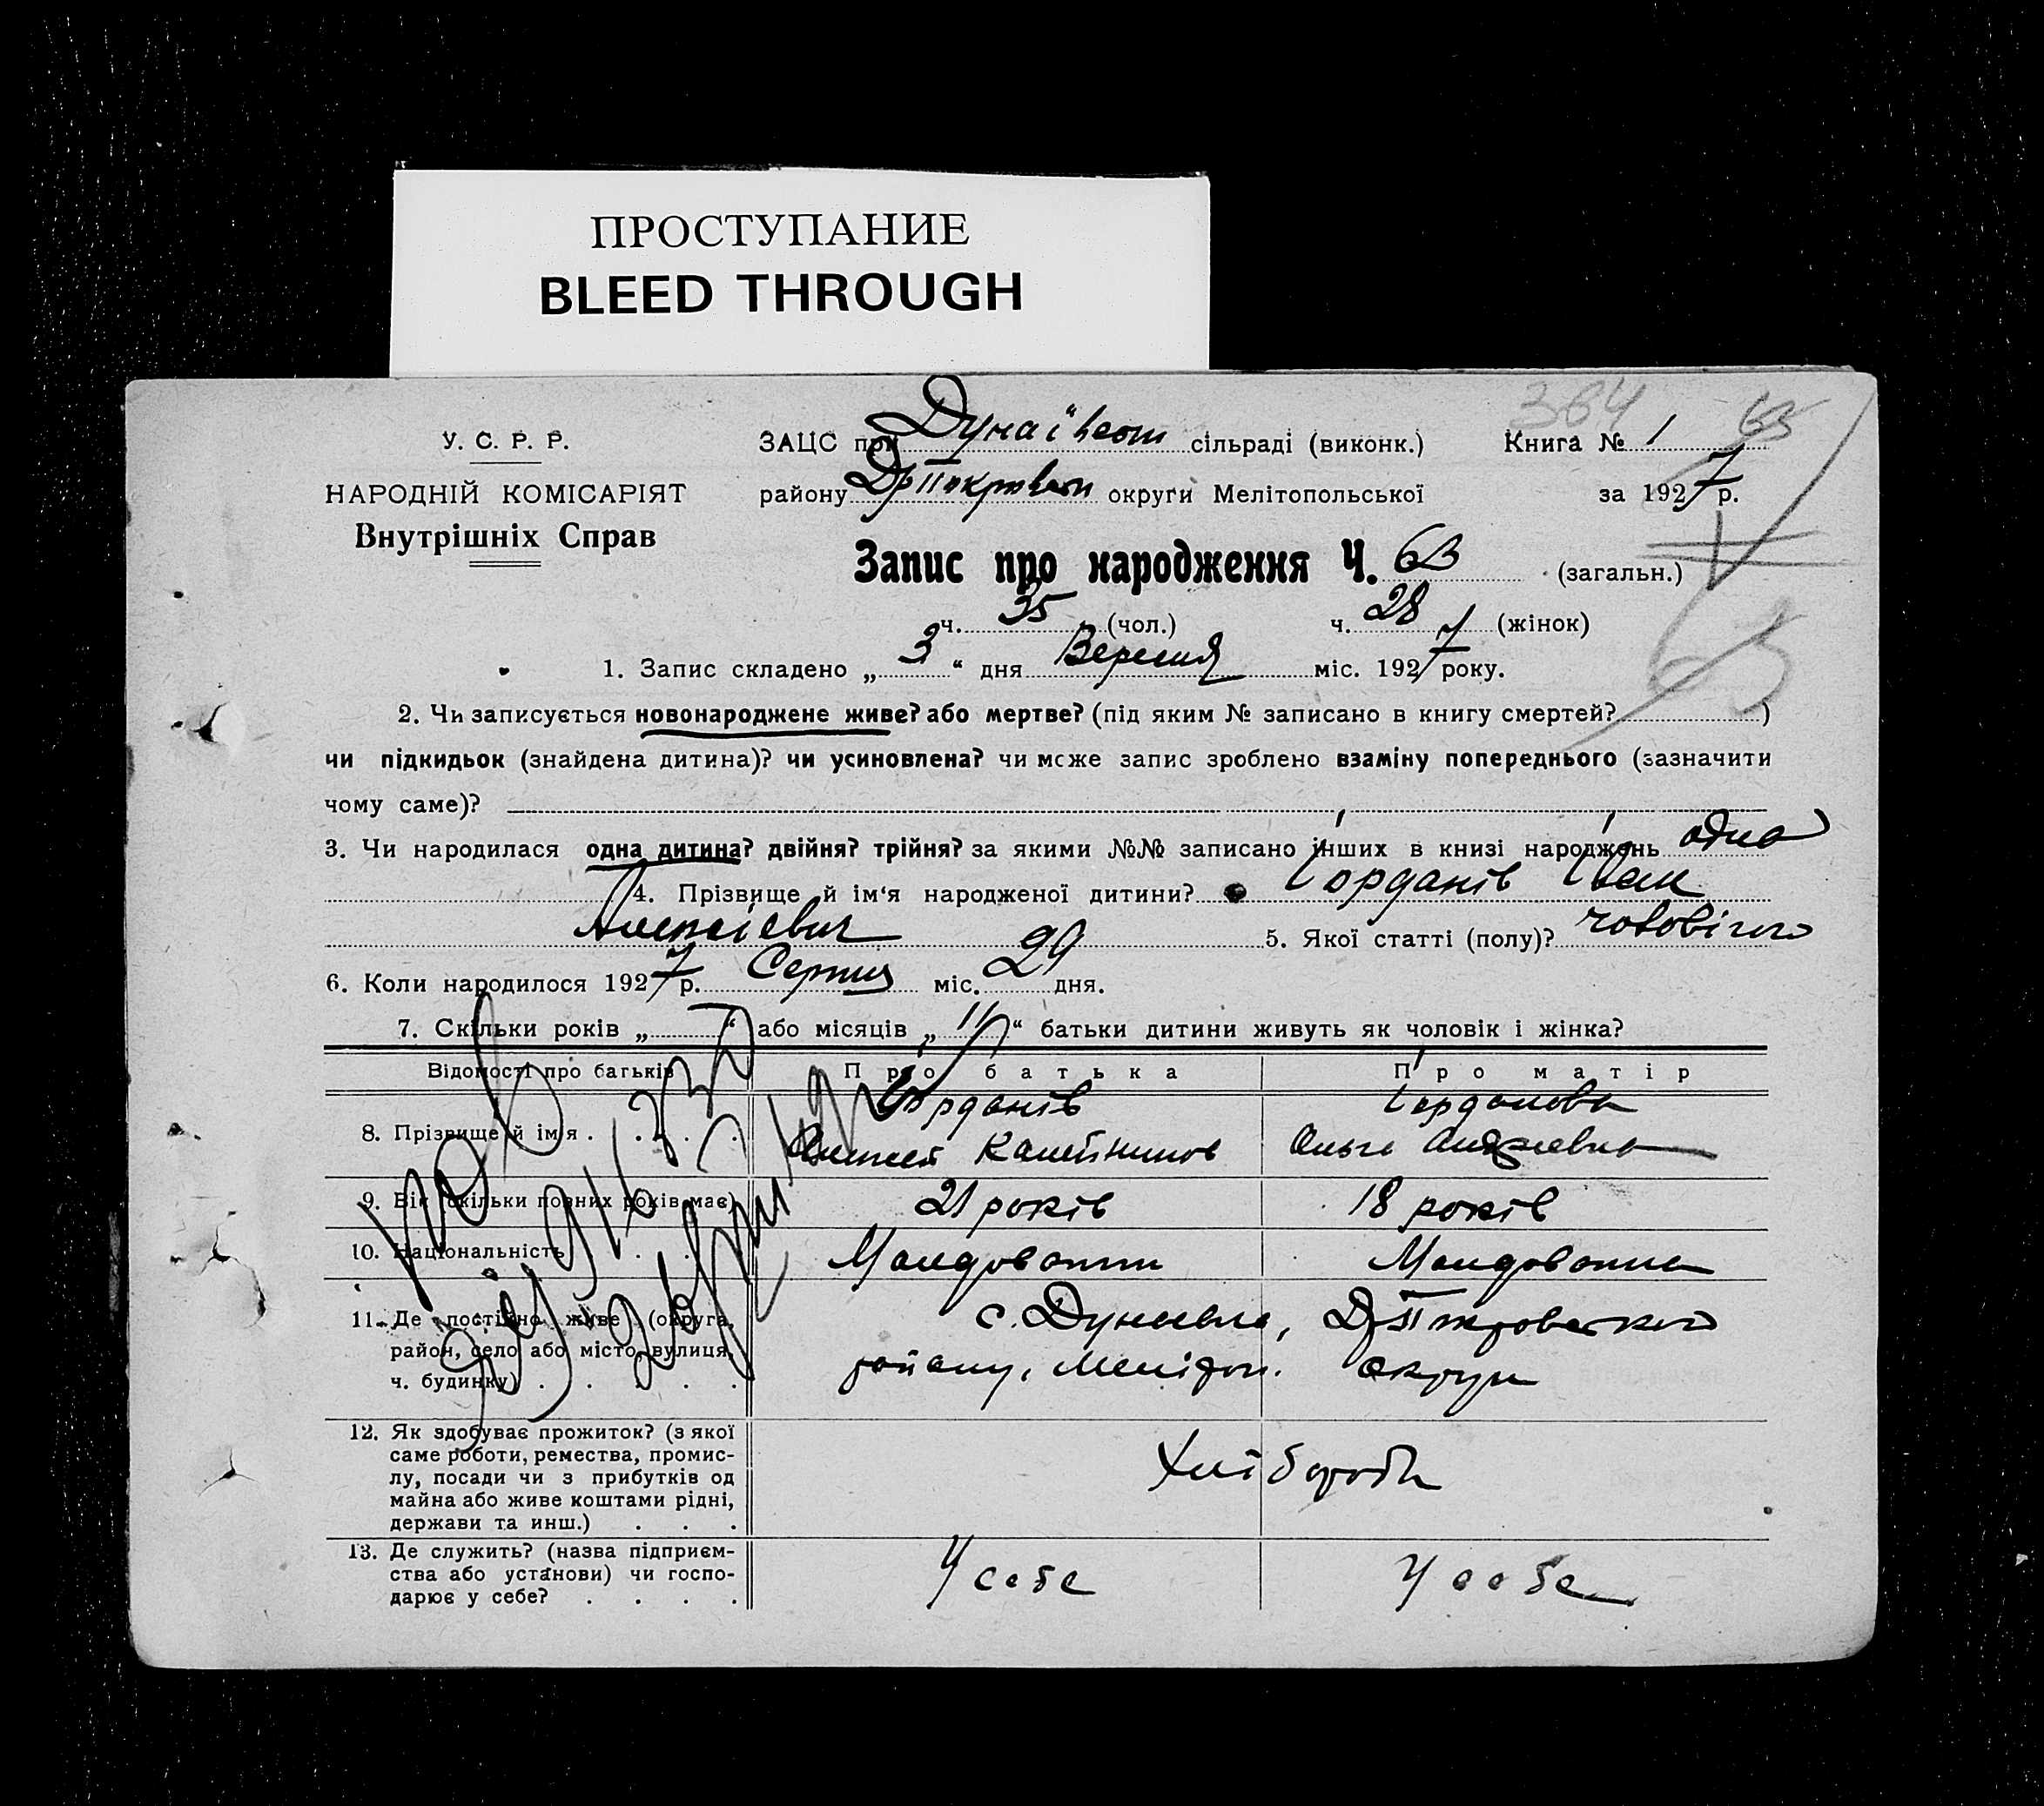 ПРОСТУПАНИЕ
BLEED THROUGH
364 63
У. С. Р. Р.
ЗАЦС при Дунаївськ сільраді (виконк.) Книга № 1
НАРОДНІЙ КОМІСАРІЯТ
району округи Мелітопольської за 1927 р.
Внутрішніх Справ
Запис про народження Ч. 63 (загальн.)
ч. 35 (чол.) ч. 28 (жінок)
63
1. Запис складено „ 3 “ дня Вересня міс. 1927 року.
2. Чи записується новонароджене живе? або мертве? (під яким № записано в книгу смертей? )
чи підкидьок (знайдена дитина)? чи усиновлена? чи може запис зроблено взаміну попереднього (зазначити
чому саме)?
3. Чи народилася одна дитина? двійня? трійня? за якими №№ записано інших в книзі народжень одна
4. Прізвище й ім‘я народженої дитини? Іорданів Іван
Алексієвич 5. Якої статті (полу)? чоловічого
6. Коли народилося 1927 р. Серпня міс. 29 дня.
7. Скільки років „ “ або місяців „ 11 “ батьки дитини живуть як чоловік і жінка?
Відомості про батьків Про батька Про матір
8. Прізвище й ім'я . . . . . Іорданів Іорданова
Алексей Ольга
9. Вік (скільки повних років має) 21 років 18 років
10. Національність . . . . Молдованин Молдованка
11. Де постійно живе (округа, район, село або місто, вулиця, ч. будинку) . . . . . с. Дунаївка,
району, Мелітоп. округи
12. Як здобуває прожиток? (з якої
саме роботи, ремества, промис-
лу, посади чи з прибутків од
майна або живе коштами рідні,
держави та инш.) . . . Хліборобы
13. Де служить? (назва підприєм-
ства або установи) чи госпо-
дарює у себе? . . . . У себе У себе